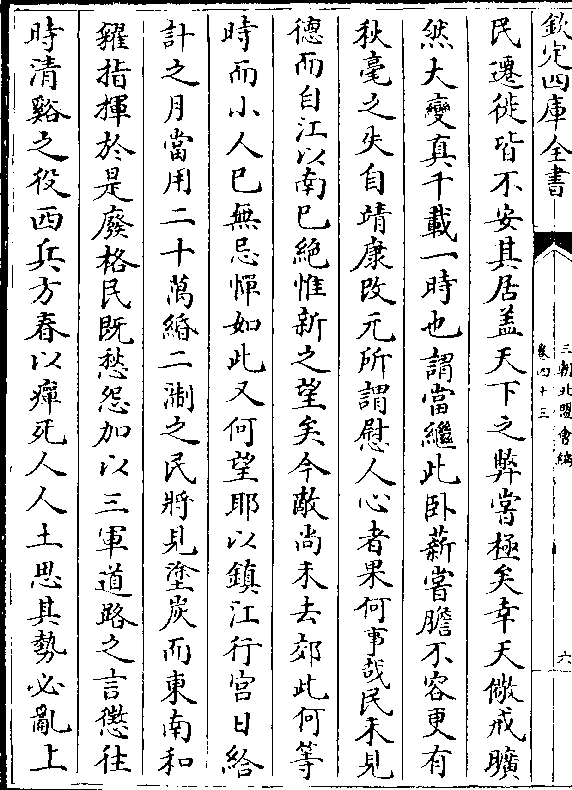 欽定四庫全書
三朝北盟會編
卷四十三
六
民遷徙皆不安其居盖天下之弊嘗極矣幸天儆戒曠
然大變真千載一時也謂當繼此卧薪嘗膽不容更有
秋毫之失自靖康改元所謂慰人心者果何事哉民未見
德而自江以南已絶惟新之望矣今敵尚未去郊此何等
時而小人已無忌憚如此又何望耶以鎮江行宫日給
計之月當用二十萬緡二淛之民將見塗炭而東南和
糴指揮於是廢格民既愁怨加以三軍道路之言懲往
時清谿之役西兵方春以癉死人人土思其勢必亂上